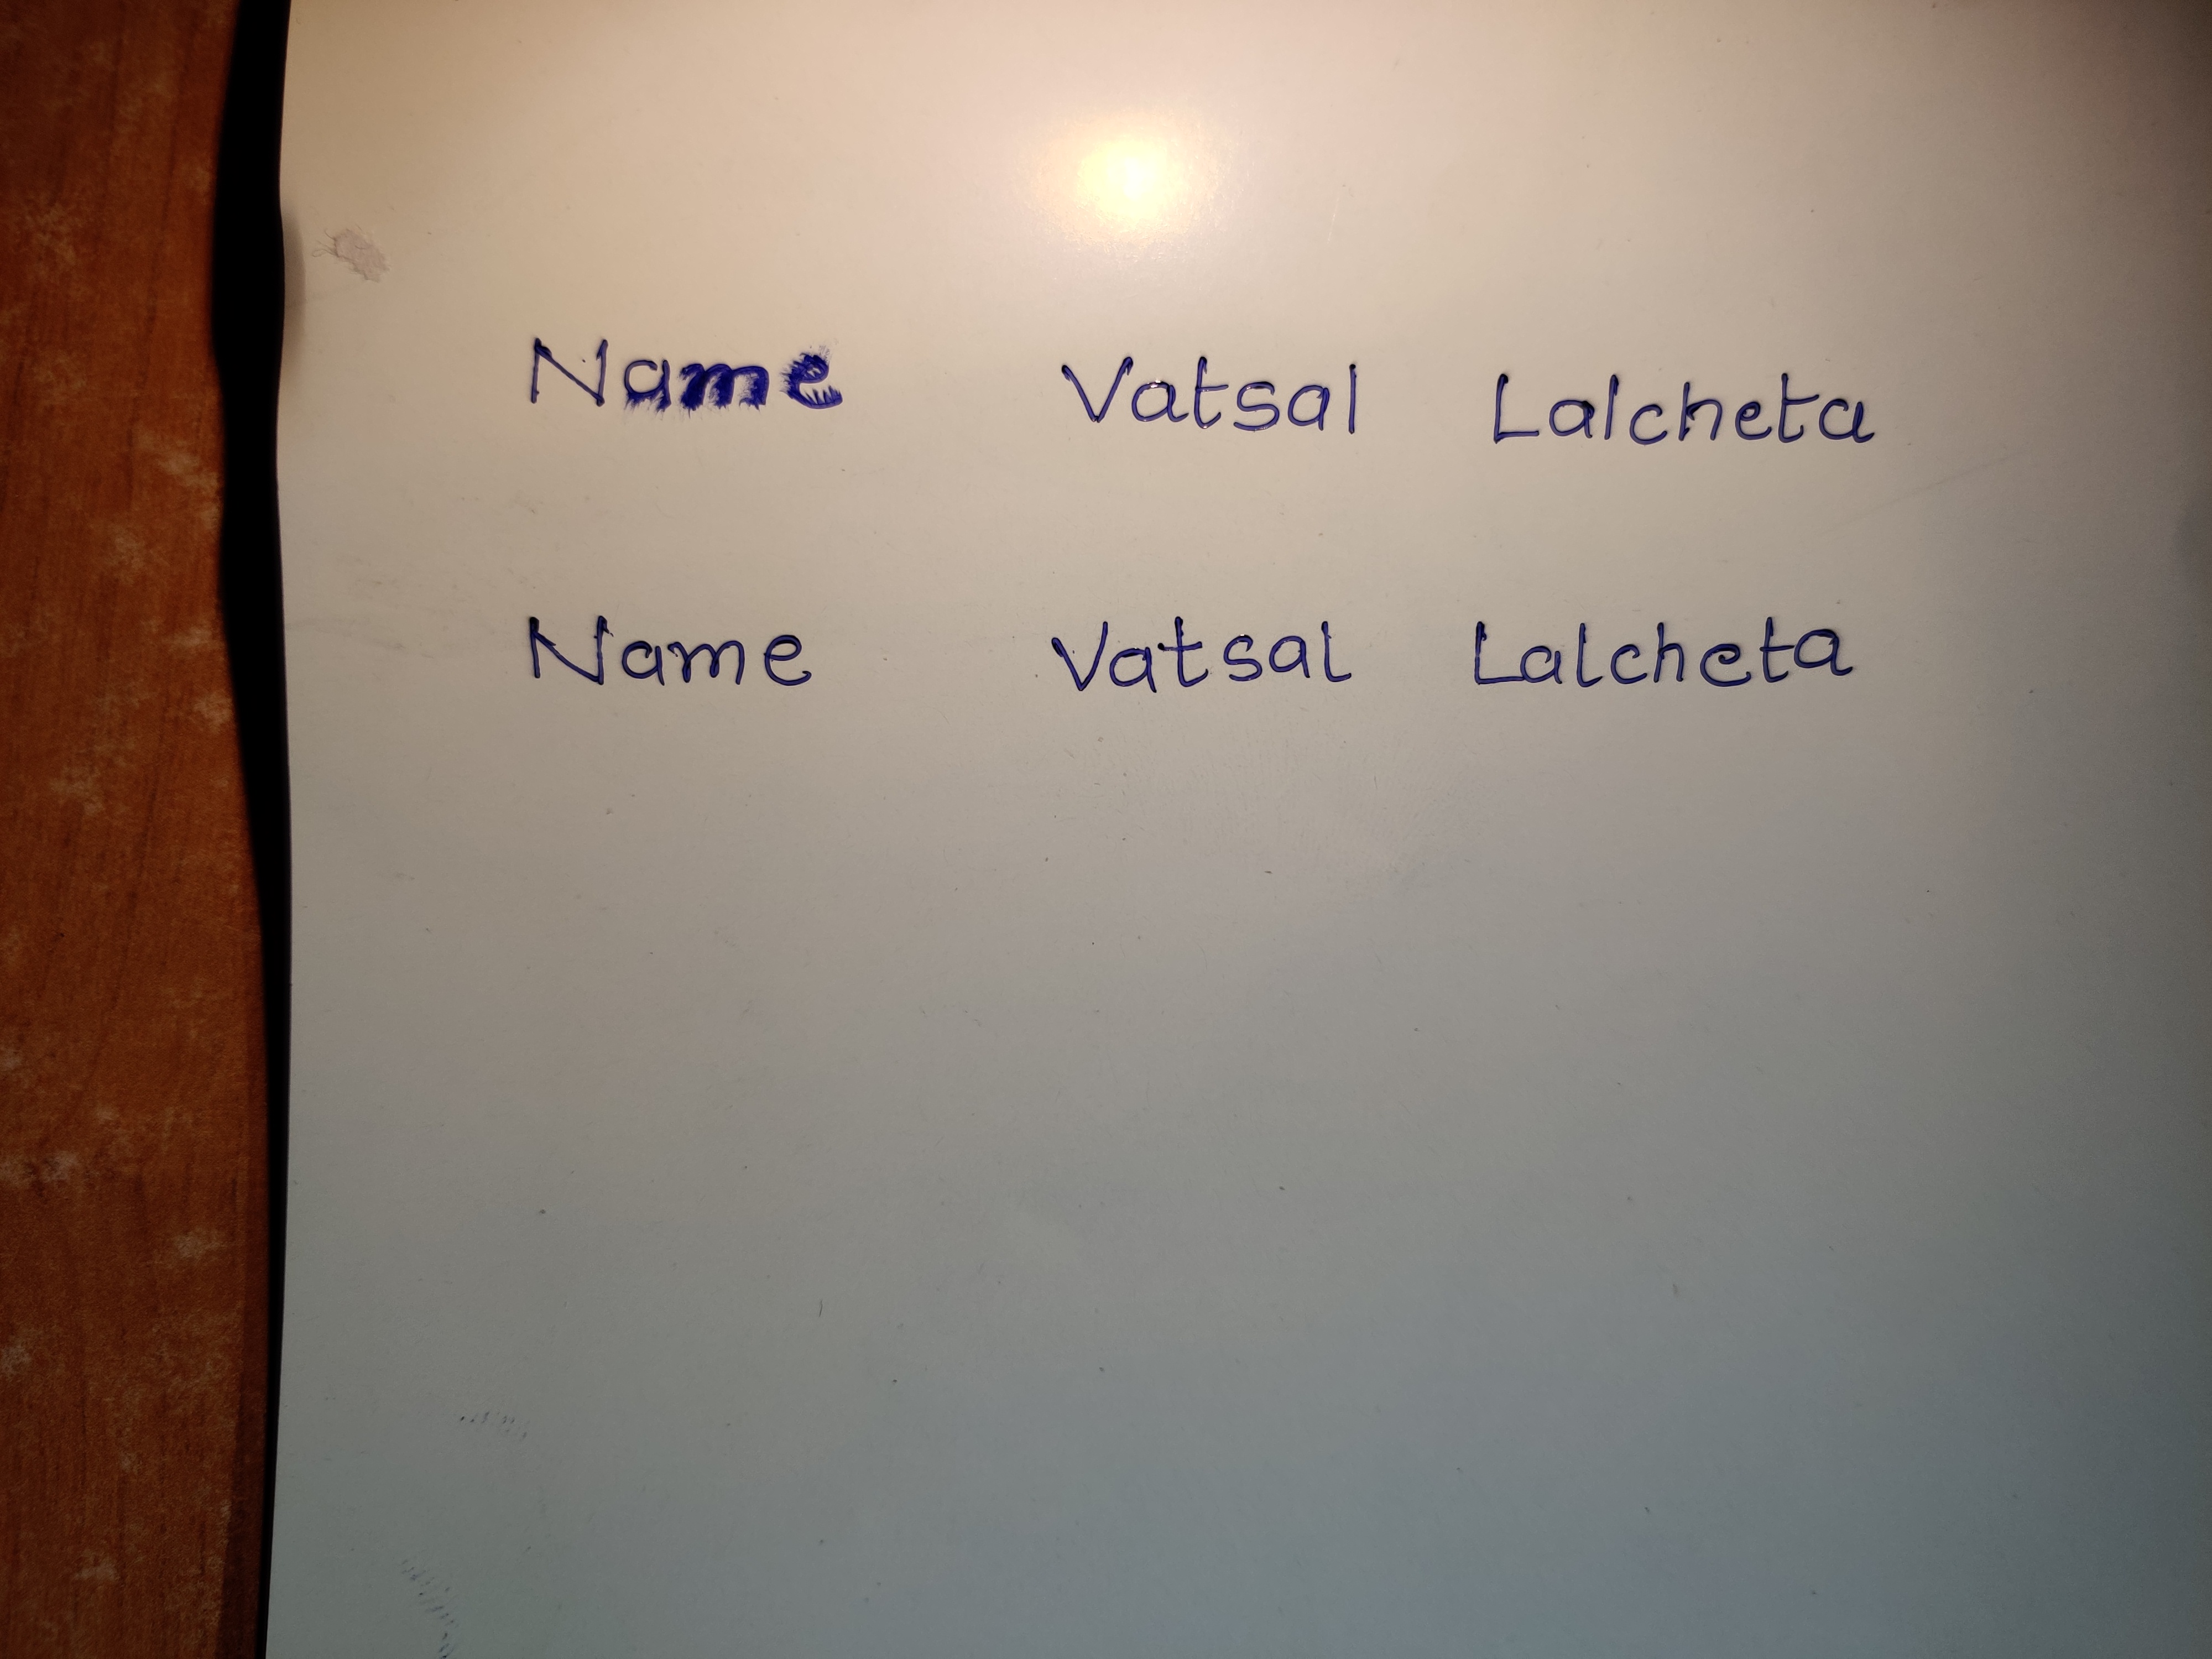 Name Vatsal Lalcheta
Name Vatsal Lalcheta